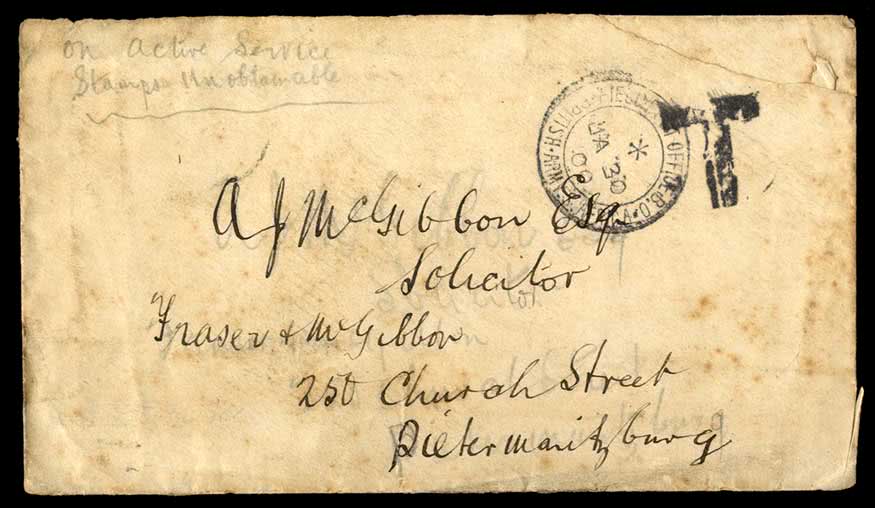 on Active Service
Stamps Unobtainable
FIELD POST OFFICE · B.O.
BRITISH · ARMY
JA 30
00
T
A J McGibbon Esq
Solicitor
Fraser & McGibbon
250 Church Street
Pietermaritzburg